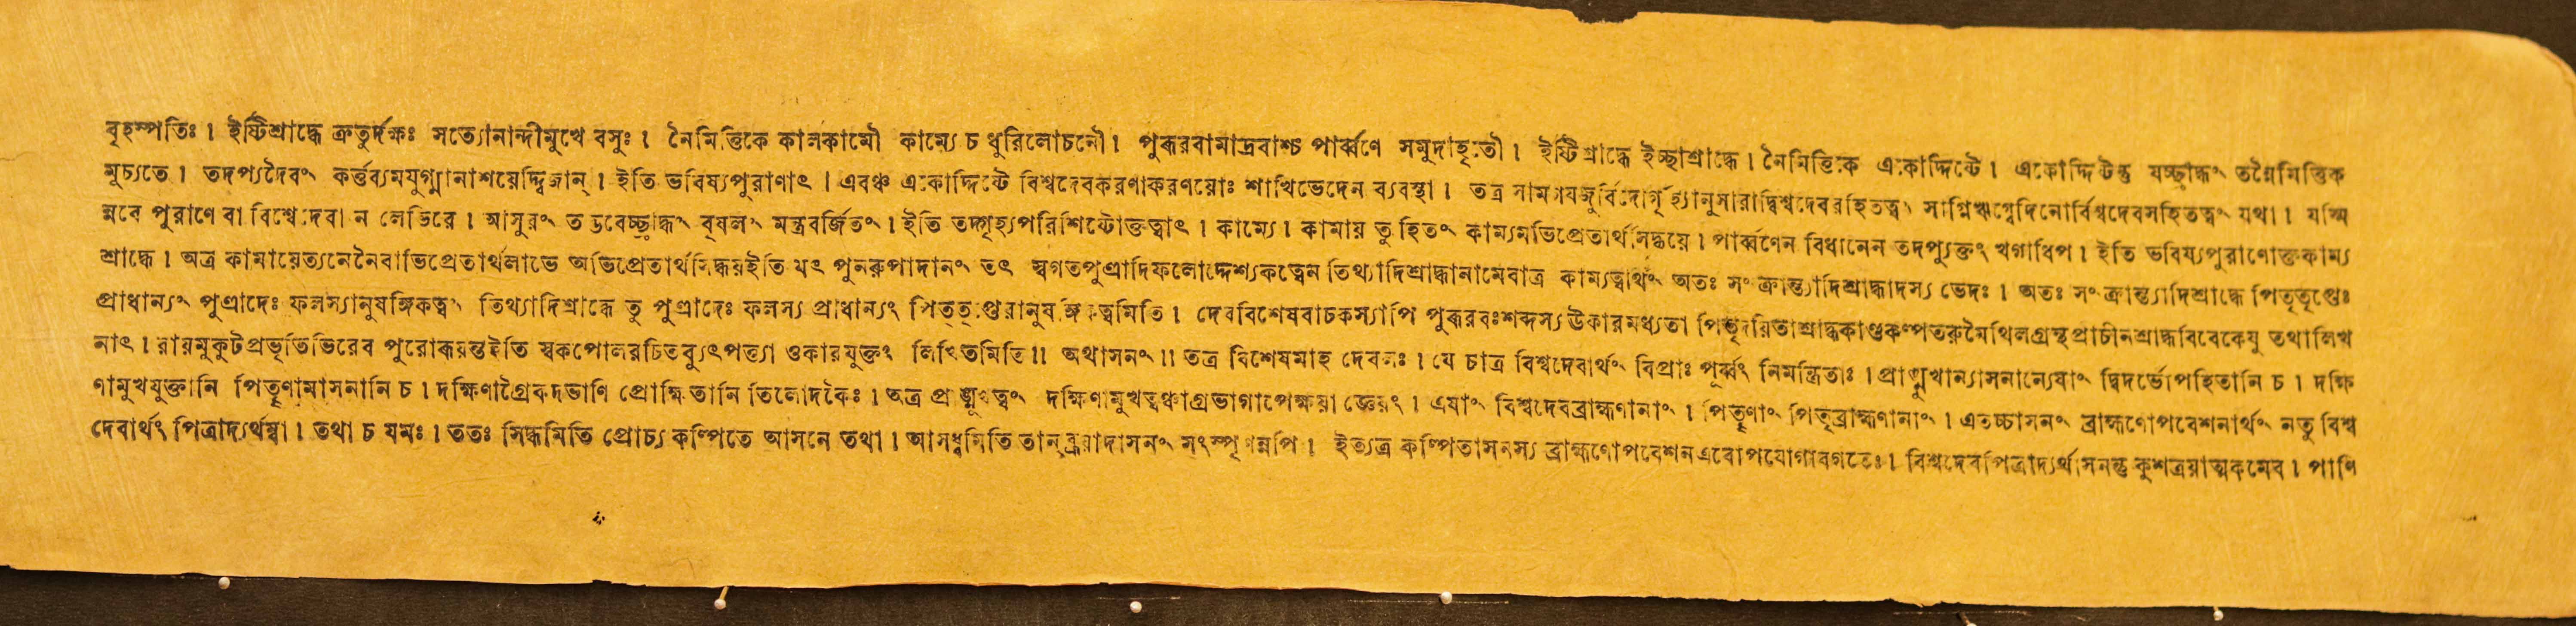 বৃহস্পতিঃ । ইষ্টিশ্রাদ্ধে ক্রতুর্দক্ষঃ সত্যোনান্দীমুখে বসুঃ । নৈমিত্তিকে কালকামৌ কাম্যে চ ধুরিলোচনৌ । পুরূরবামাদ্রবাশ্চ পার্ব্বণে সমুদাহৃতৌ । ইষ্টিশ্রাদ্ধে ইচ্ছাশ্রাদ্ধে । নৈমিত্তিকে একোদ্দিষ্টে । একোদ্দিষ্টন্তু যচ্ছ্রাদ্ধং তন্নৈমিত্তিক
মুচ্যতে । তদপ্যদৈবং কর্ত্তব্যমযুগ্মানাশয়েদ্দ্বিজান্ । ইতি ভবিষ্যপুরাণাৎ । এবঞ্চ একোদ্দিষ্টে বিশ্বদেবকরণাকরণয়োঃ শাখিভেদেন ব্যবস্থা । তত্র সামগযজুর্বিদোর্গৃহ্যানুসারাদ্বিশ্বদেবরহিতত্বং সাগ্নিঋগ্বেদিনোর্বিশ্বদেবসহিতত্বং যথা । যস্মি
ন্নবে পুরাণে বা বিশ্বেদেবা ন লেভিরে । আসুরং তদ্ভবেচ্ছ্রাদ্ধং বৃষলং মন্ত্রবর্জিতং । ইতি তদ্গৃহ্যপরিশিষ্টোক্তত্বাৎ । কাম্যে । কামায় তু হিতং কাম্যমভিপ্রেতার্থসিদ্ধয়ে । পার্ব্বণেন বিধানেন তদপ্যুক্তং খগাধিপ । ইতি ভবিষ্যপুরাণোক্তকাম্য
শ্রাদ্ধে । অত্র কামায়েত্যনেনৈবাভিপ্রেতার্থলাভে অভিপ্রেতার্থসিদ্ধয়ইতি যৎ পুনরুপাদানং তৎ স্বগতপুণ্যাদিফলোদ্দেশ্যকত্বেন তিথ্যাদিশ্রাদ্ধানামেবাত্র কাম্যত্বার্থং অতঃ সংক্রান্ত্যাদিশ্রাদ্ধাদস্য ভেদঃ । অতঃ সংক্রান্ত্যাদিশ্রাদ্ধে পিতৃতৃপ্তেঃ
প্রাধান্যং পুণ্যাদেঃ ফলস্যানুষঙ্গিকত্বং তিথ্যাদিশ্রাদ্ধে তু পুণ্যাদেঃ ফলস্য প্রাধান্যং পিতৃতৃপ্তেরানুষঙ্গিকত্বমিতি । দেববিশেষবাচকস্যাপি পুরূরবঃশব্দস্য ঊকারমধ্যতা পিতৃদয়িতাশ্রাদ্ধকাণ্ডকল্পতরুমৈথিলগ্রন্থপ্রাচীনশ্রাদ্ধবিবেকেষু তথালিখ
নাৎ । রায়মুকুটপ্রভৃতিভিরেব পুরোরূয়ন্তইতি স্বকপোলরচিতব্যুৎপত্ত্যা ওকারযুক্তং লিখিতমিতি ॥ অথাসনং ॥ তত্র বিশেষমাহ দেবলঃ । যে চাত্র বিশ্বদেবার্থং বিপ্রাঃ পূর্ব্বং নিমন্ত্রিতাঃ । প্রাঙ্মুখান্যাসনান্যেষাং দ্বিদর্ভোপহিতানি চ । দক্ষি
ণামুখযুক্তানি পিতৄণামাসনানি চ । দক্ষিণাগ্রৈকদর্ভাণি প্রোক্ষিতানি তিলোদকৈঃ । অত্র প্রাঙ্মুখত্বং দক্ষিণামুখত্বঞ্চাগ্রভাগাপেক্ষয়া জ্ঞেয়ং । এষাং বিশ্বদেবব্রাহ্মণানাং । পিতৄণাং পিতৃব্রাহ্মণানাং । এতচ্চাসনং ব্রাহ্মণোপবেশনার্থং নতু বিশ্ব
দেবার্থং পিত্রাদ্যর্থম্বা । তথা চ যমঃ । ততঃ সিদ্ধমিতি প্রোচ্য কল্পিতে আসনে তথা । আসধ্বমিতি তান্ ব্রূয়াদাসনং সংস্পৃশন্নপি । ইত্যত্র কল্পিতাসনস্য ব্রাহ্মণোপবেশনএবোপযোগাবগতেঃ । বিশ্বদেবপিত্রাদ্যর্থাসনন্তু কুশত্রয়াত্মকমেব । পাণি